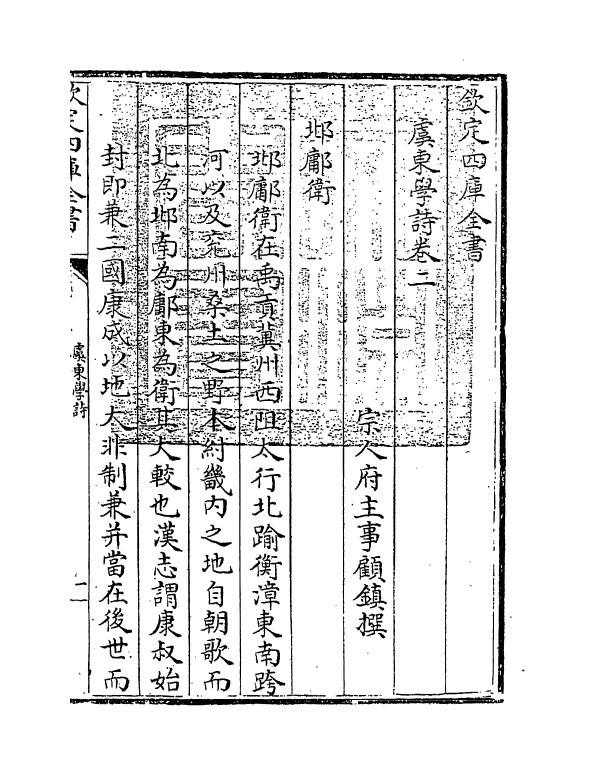 欽定四庫全書
虞東學詩卷二
宗人府主事顧鎮撰
邶鄘衛
邶鄘衛在禹貢冀州西阻太行北踰衡漳東南跨
河以及兖州桑土之野本紂畿内之地自朝歌而
北為邶南為鄘東為衛其大較也漢志謂康叔始
封即兼二國康成以地大非制兼并當在後世而
欽定四庫全書
虞東學詩